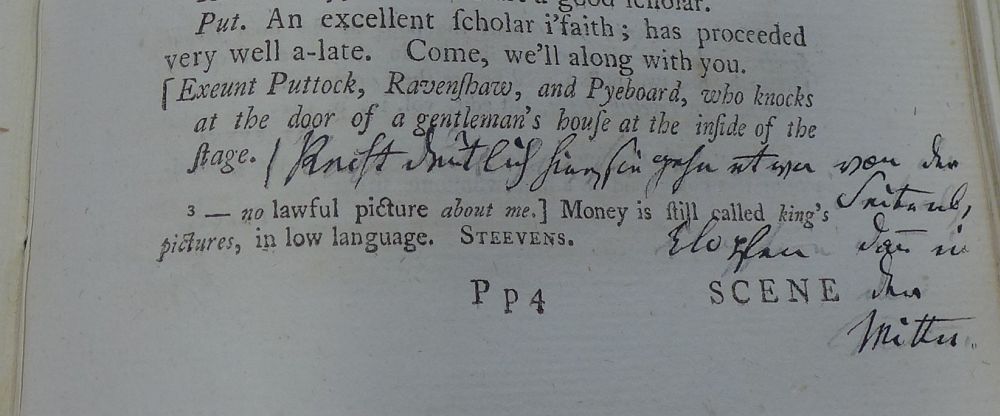 a good ſcholar.
Put. An excellent ſcholar i'faith; has proceeded
very well a-late. Come, we'll along with you.
[Exeunt Puttock, Ravenſhaw, and Pyeboard, who knocks
at the door of a gentleman's houſe at the inſide of the
ſtage. / Recht deutlich hier, sie gehn etwa von der
Seite ab,
3 — no lawful picture about me.] Money is ſtill called king's
pictures, in low language. STEEVENS.
klopfen dañ in
P p 4 SCENE
der
Mitte.